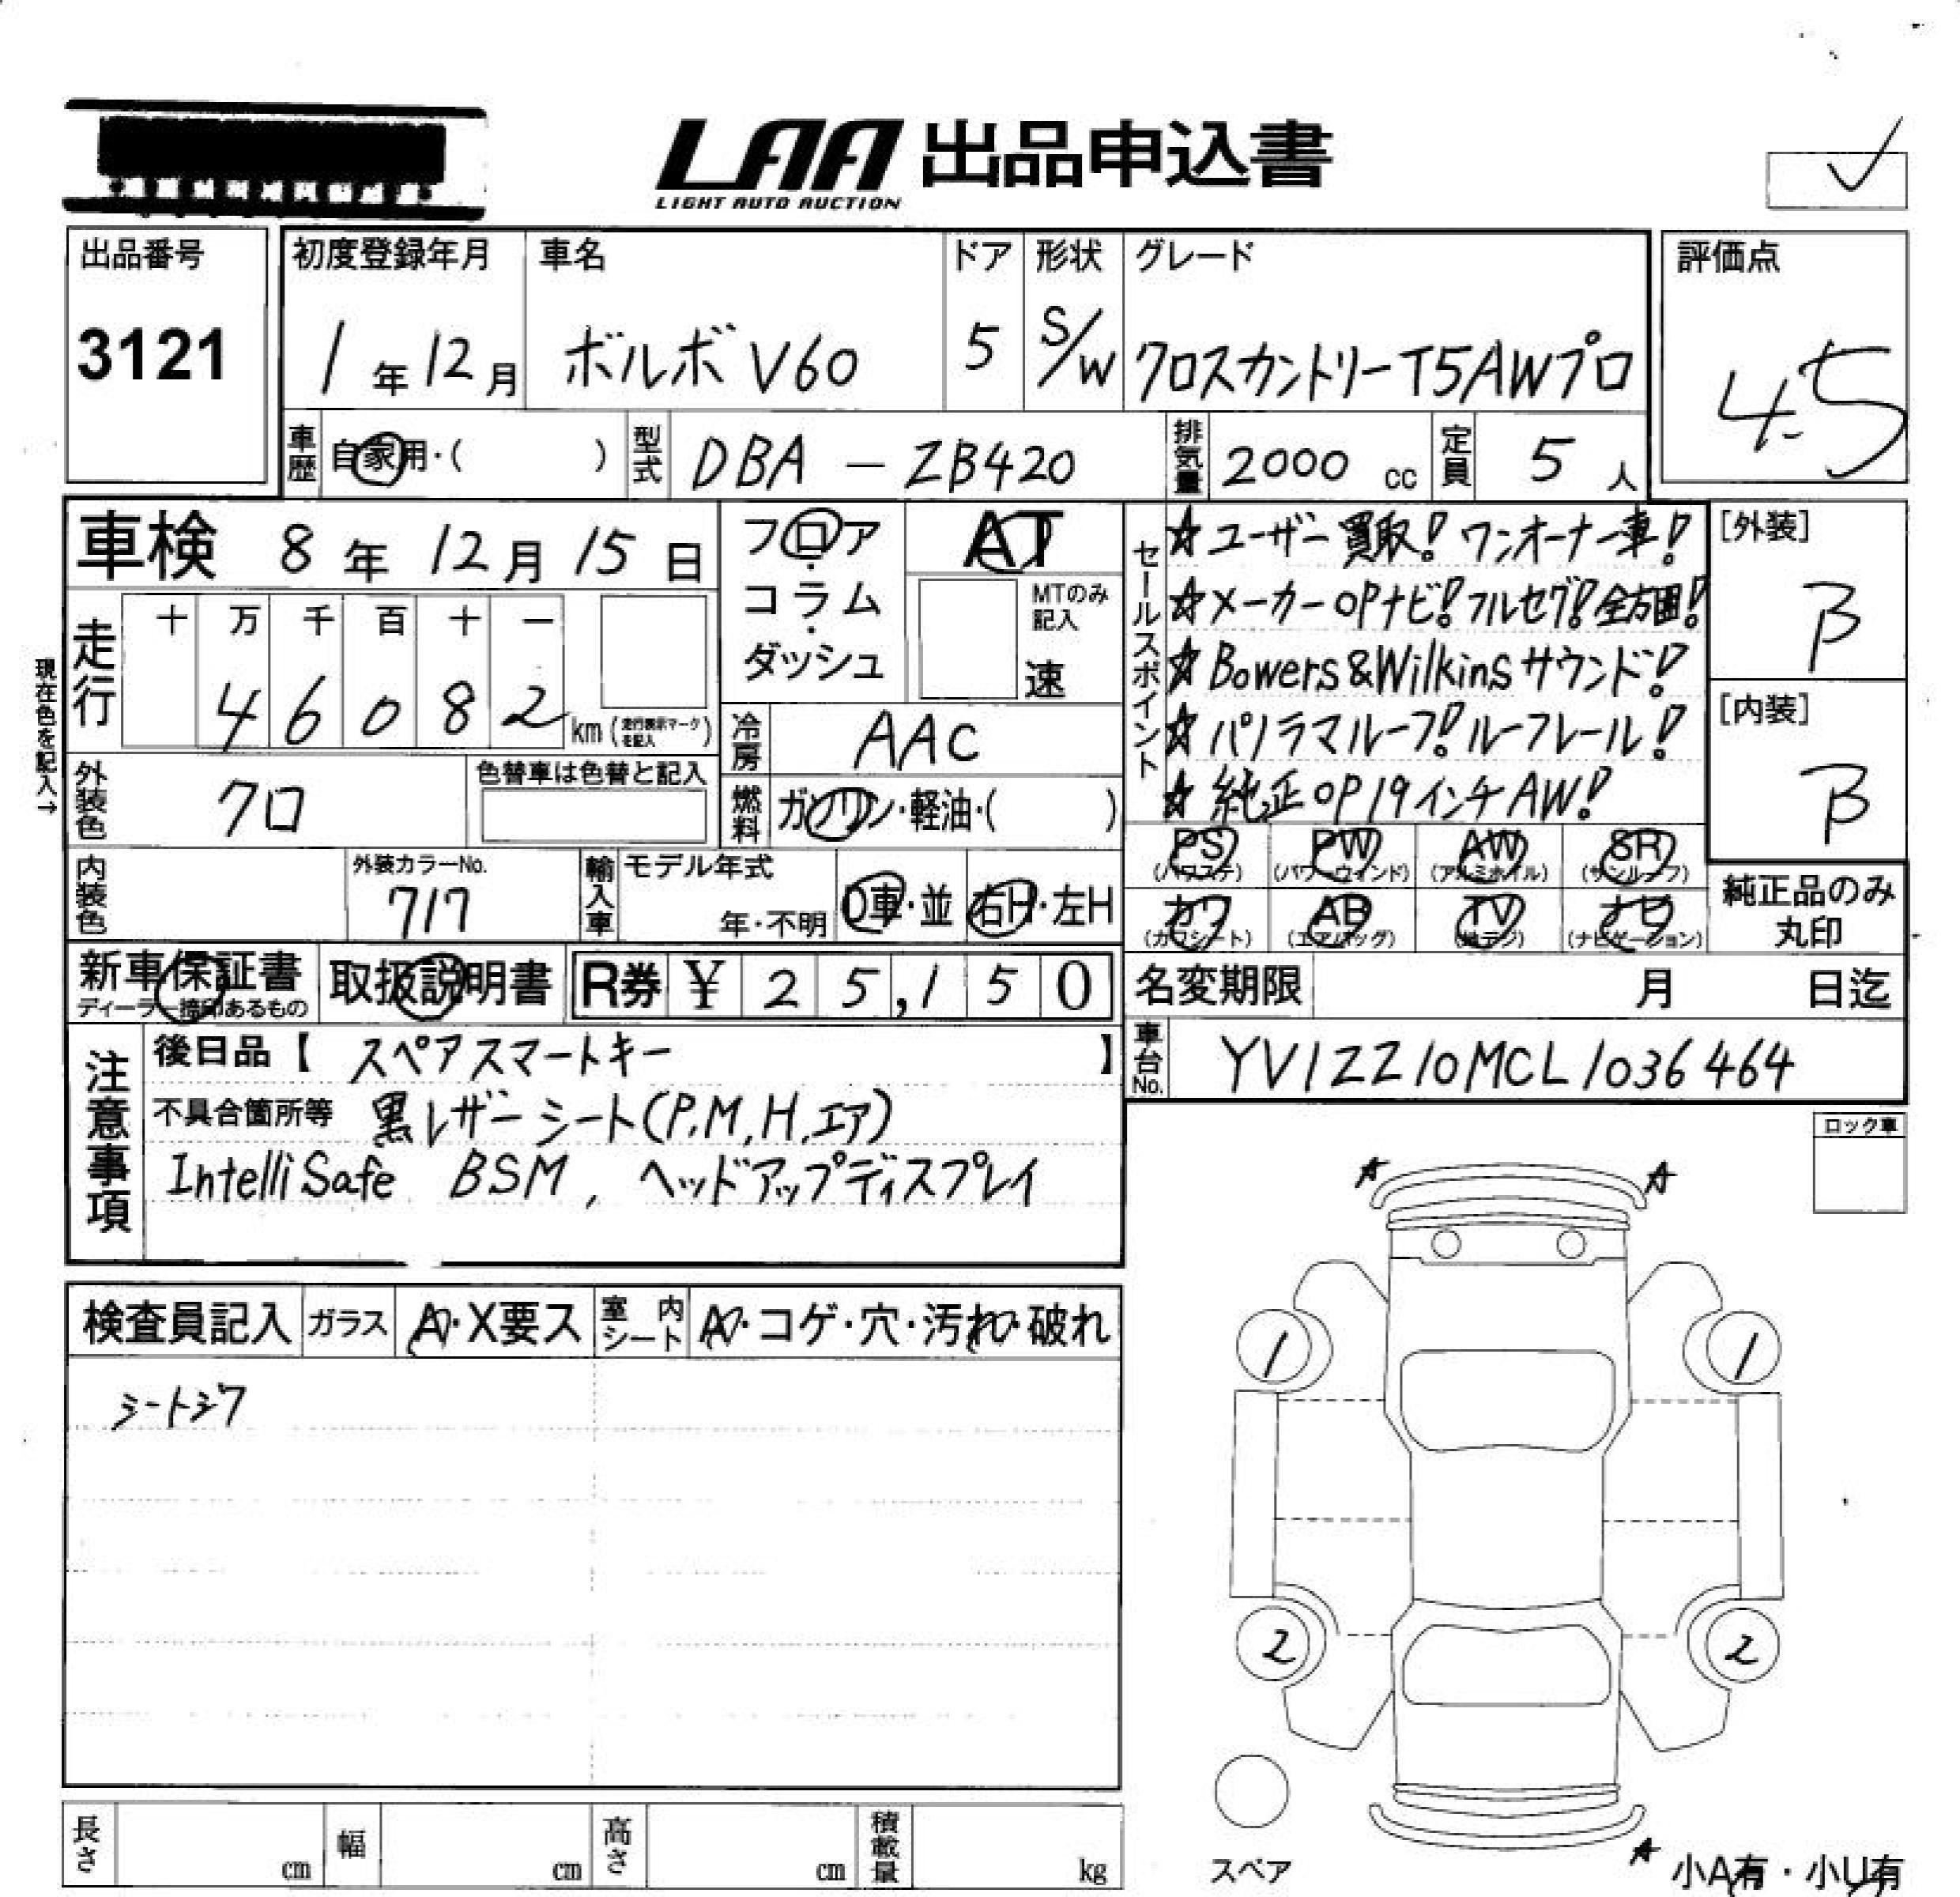 LAA 出品申込書
LIGHT AUTO AUCTION
出品番号
3121
初度登録年月
1年12月
車名
ボルボ V60
ドア
5
形状
S/W
グレード
クロスカントリーT5AWプロ
評価点
4.5
車歴
自家用・( )
型式
DBA - ZB420
排気量
2000 cc
定員
5 人
車検 8年 12月 15日
フロア・コラム・ダッシュ
AT
MTのみ記入
速
走行
十 万 千 百 十 一
4 6 0 8 2 km (走行表示マークを記入)
現在色を記入→
外装色
クロ
色替車は色替と記入
冷房
AAC
燃料
ガソリン・軽油・( )
内装色
外装カラーNo.
717
輸入車
モデル年式
年・不明
D車・並
右H・左H
セールスポイント
☆ユーザー買取! ワンオーナー車!
☆メーカーOPナビ! フルセグ! 全方囲!
☆Bowers&Wilkinsサウンド!
☆パノラマルーフ! ルーフレール!
☆純正OP19インチAW!
[外装]
B
[内装]
B
PS (パワステ)
PW (パワーウィンド)
AW (アルミホイル)
SR (サンルーフ)
カワ (カワシート)
AB (エアバッグ)
TV (地デジ)
ナビ (ナビゲーション)
純正品のみ丸印
新車保証書
ディーラー捺印あるもの
取扱説明書
R券 ¥ 25,150
名変期限 月 日迄
車台No.
YV1ZZ10MCL1036464
注意事項
後日品【 スペアスマートキー 】
不具合箇所等 黒レザーシート(P,M,H,エア)
IntelliSafe BSM, ヘッドアップディスプレイ
ロック車
検査員記入
ガラス
A・X要ス
室内シート
A・コゲ・穴・汚れ・破れ
シートシワ
A A
1 1
2 2
スペア
A
小A有・小U有
長さ cm
幅 cm
高さ cm
積載量 kg